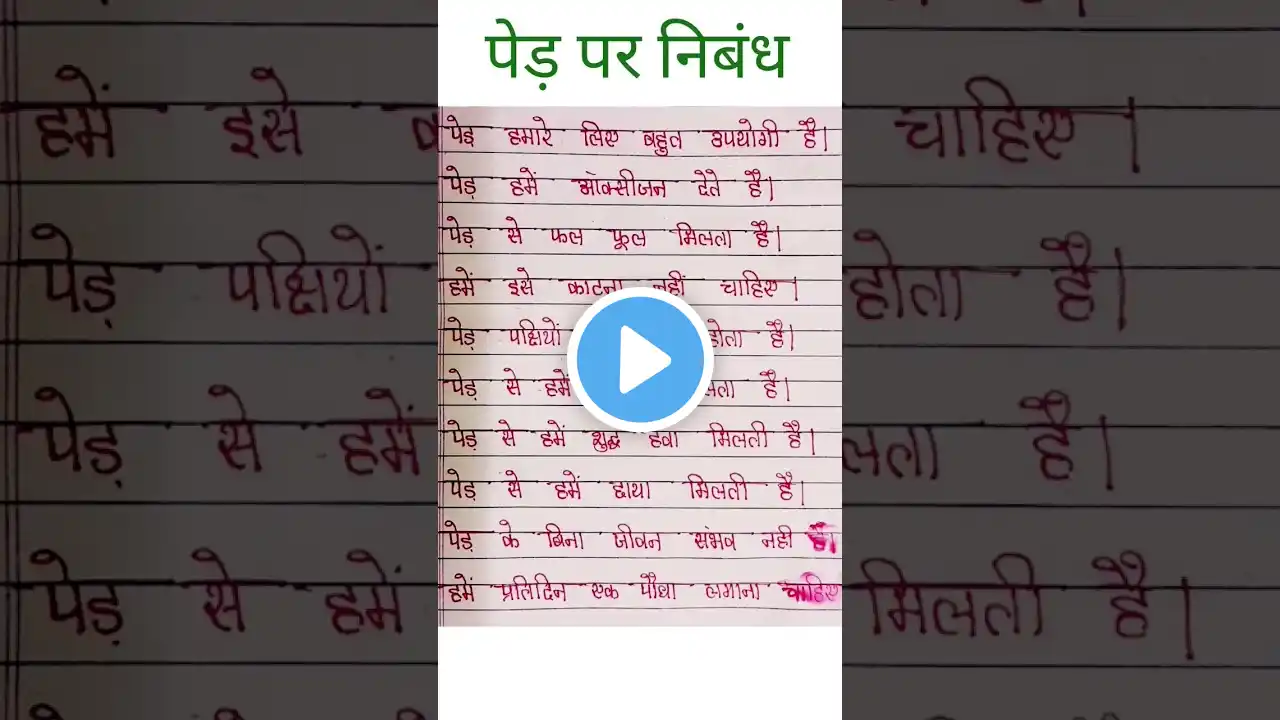 पेड़ पर निबंध
पेड़ हमारे लिए बहुत उपयोगी है।
पेड़ हमें ऑक्सीजन देते है।
पेड़ से फल फूल मिलता है।
हमें इसे काटना नहीं चाहिए।
पेड़ पक्षियों होता है।
पेड़ से हमें है।
पेड़ से हमें शुद्ध हवा मिलती है।
पेड़ से हमें छाया मिलती है।
पेड़ के बिना जीवन संभव नही है।
हमें प्रतिदिन एक पौधा लगाना चाहिए